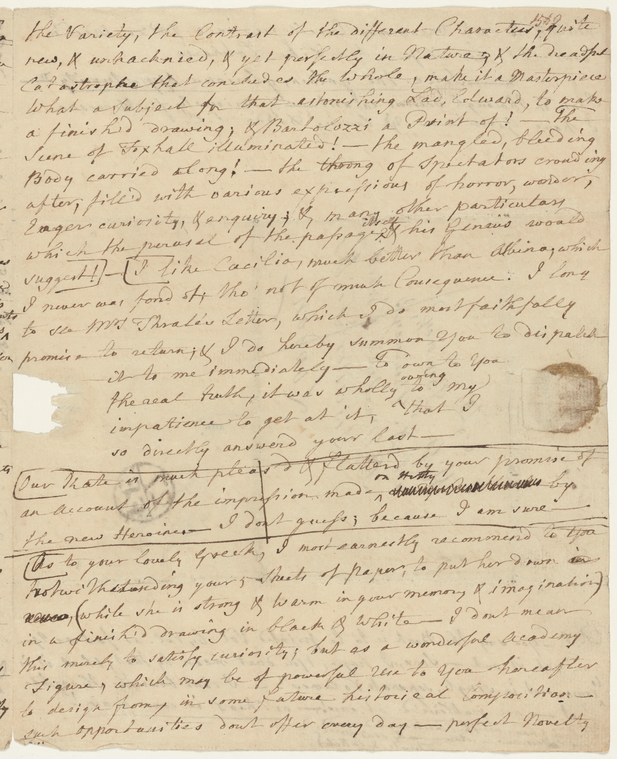 1582
the Variety, the Contrast of the different Characters, quite
new, & unhacknied, & yet perfectly in Nature; & the dreadful
Catastrophe that concludes the whole, make it a Masterpiece
What a subject for that astonishing Lad, Edward, to make
a finish'd drawing; & Bartolozzi a Print of! — The
Scene of Foxhall illuminated! — the mangled, bleeding
Body carried along! — the throng of Spectators crowding
after, fill'd with various expressions of horror, wonder,
Eager curiosity, & enquiry; & many other particulars
which the perusal of the passage itself & his Genius would
suggest! — I like Cæcilia, much better than Albina, which
I never was fond of, tho' not of much Consequence. I long
to see Mrs Thrale's Letter, which I do most faithfully
promise to return; & I do hereby summon You to dispatch
it to me immediately — To own to You
the real truth, it was wholly owing to my
impatience to get at it, that I
so directly answerd your last —
Our Kate is much pleas'd & flatterd by your promise of
an account of the impression made on Hetty by
the new Heroine — I dont guess; because I am sure —
As to your lovely Greek, I most earnestly recommend to You
notwithstanding your 3 sheets of paper, to put her down
(while she is strong & warm in your memory & imagination)
in a finish'd drawing in black & white — I dont mean
this merely to satisfy curiosity; but as a wonderful Academy
Figure, which may be of powerful Use to You hereafter
to design from, in some future historical Composition —
such opportunities dont offer every day — perfect Novelty